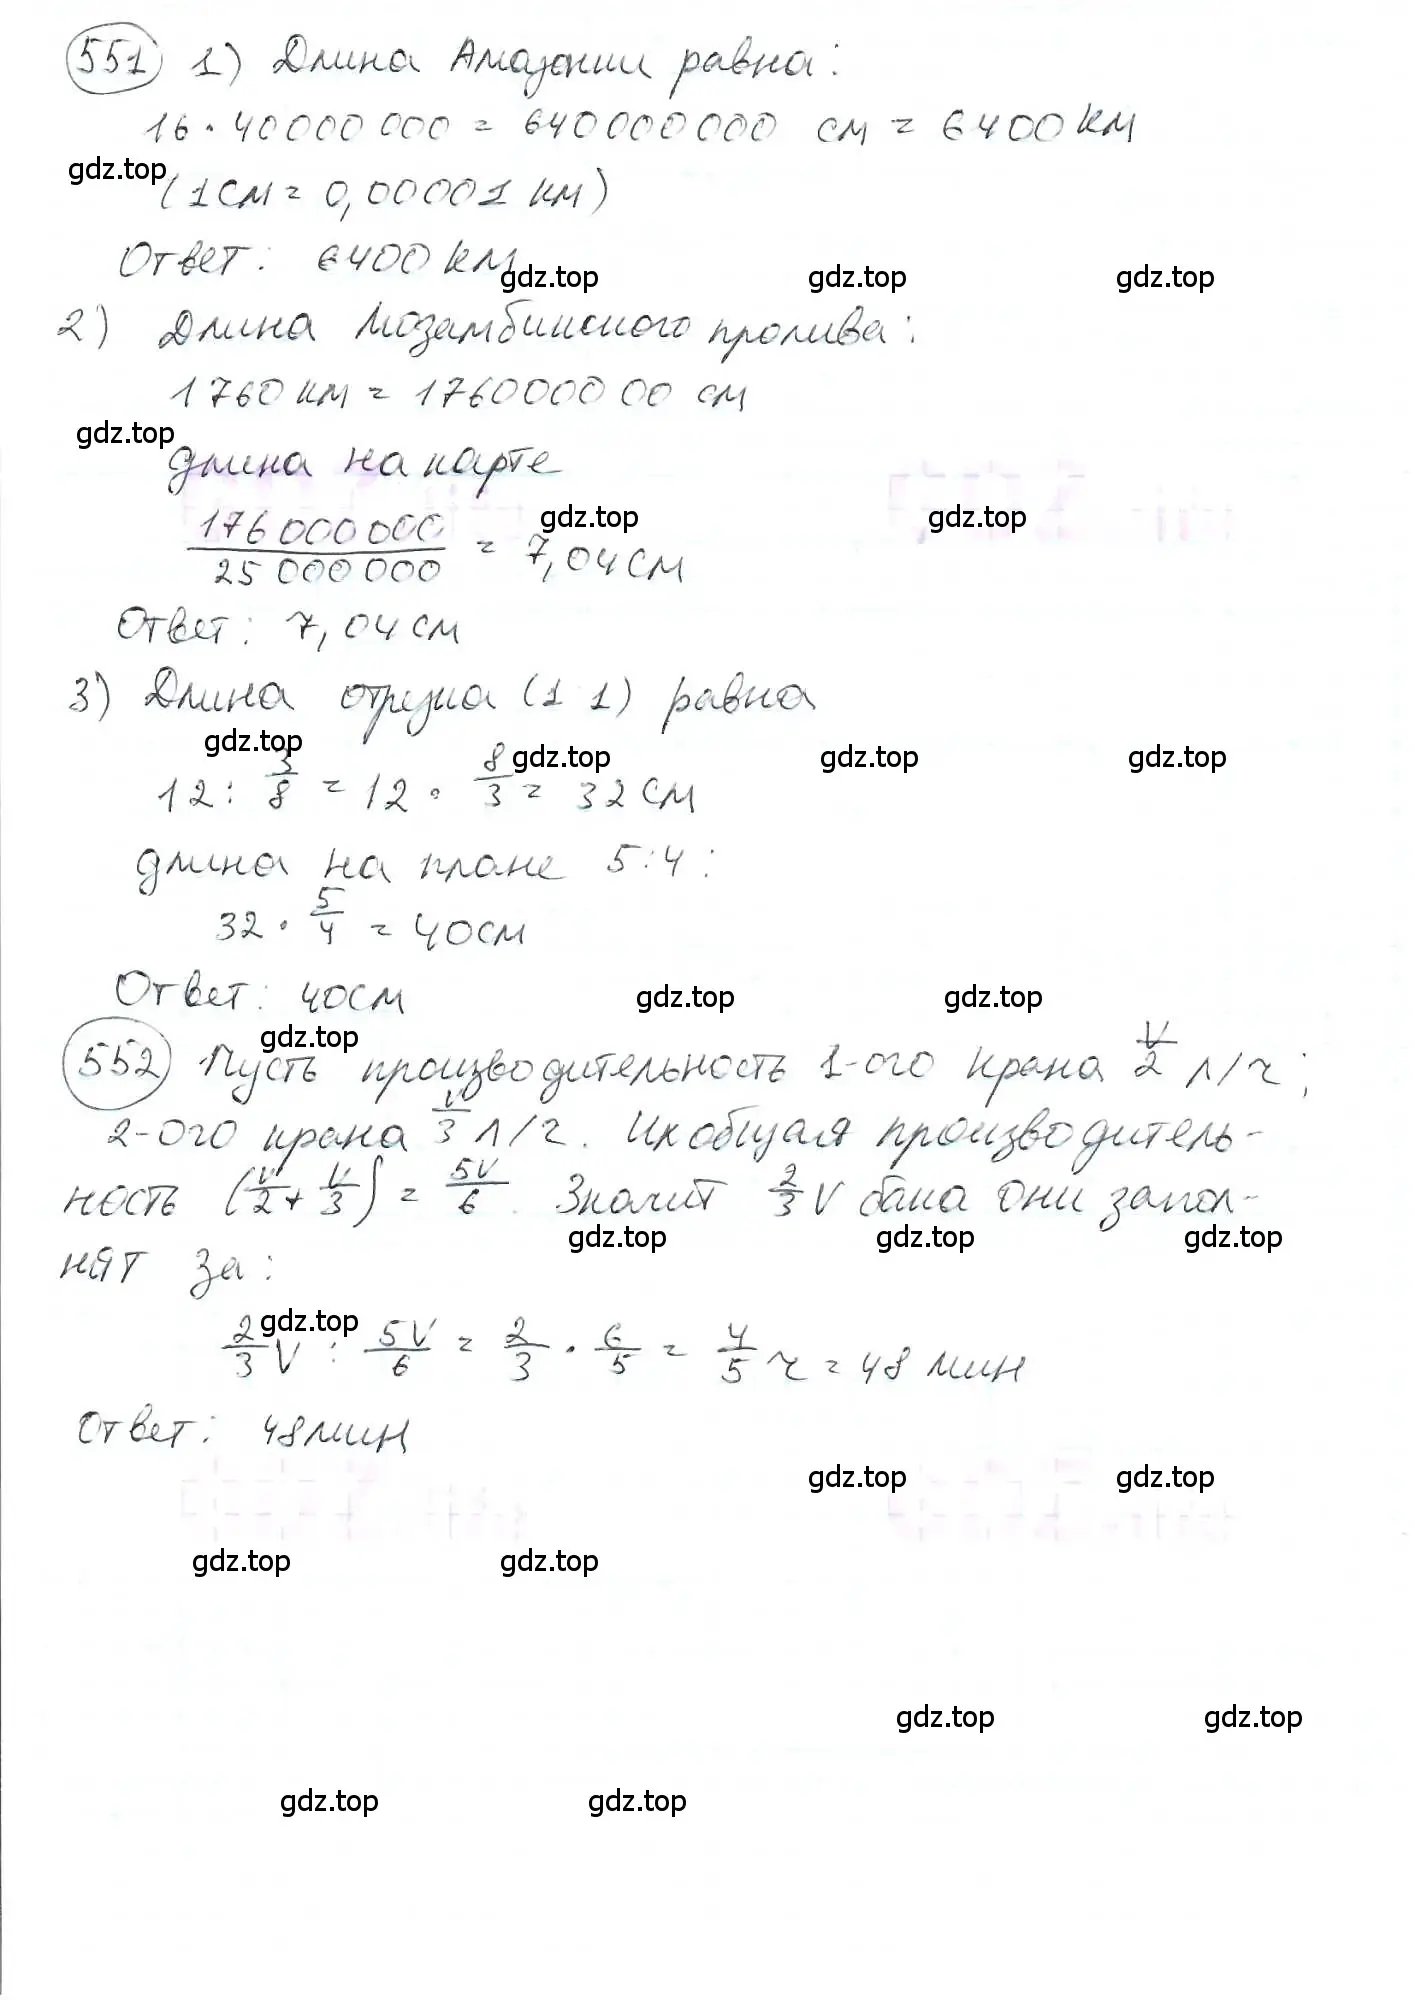 551 1) Длина Амазонии равна:
16 · 40000 000 = 640000000 см = 6400 км
gdz.top
(1 см = 0,00001 км)
Ответ: 6400 км
gdz.top gdz.top gdz.top
2) Длина Мозамбинского пролива:
1760 км = 176000000 см
gdz.top
длина на карте
gdz.top gdz.top
176 000 000 / 25 000 000 = 7,04 см
Ответ: 7,04 см
3) Длина отрезка (1 1) равна
gdz.top gdz.top gdz.top gdz.top
12 : 3/8 = 12 · 8/3 = 32 см
длина на плане 5:4:
32 · 5/4 = 40 см
Ответ: 40 см
gdz.top gdz.top
gdz.top
552 Пусть производительность 1-ого крана V/2 л/ч;
2-ого крана V/3 л/ч. Их общая производитель-
ность (V/2 + V/3) = 5V/6. Значит 2/3 V бака они запол-
gdz.top gdz.top gdz.top
нят за:
gdz.top
2/3 V : 5V/6 = 2/3 · 6/5 = 4/5 ч = 48 мин
Ответ: 48 мин
gdz.top gdz.top
gdz.top gdz.top
gdz.top gdz.top
gdz.top gdz.top